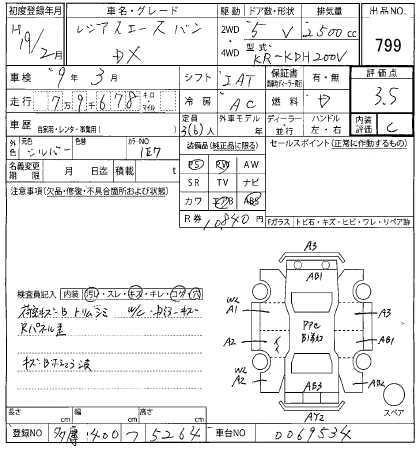 初度登録年月 車名・グレード 駆動 ドア数・形状 排気量 出品NO.
H19/2月 レジアスエース バン DX 2WD 4WD 5 V 2500cc 799
型式 KR-KDH200V
車検 9年3月 シフト IAT 保証書 有・無 評価点 3.5
走行 7万9千678 キロ マイル 冷房 AC 燃料 D
車歴 自家用・レンタ・事業用( ) 定員 3(6)人 外車モデル 年 ディーラー・並行 ハンドル 左・右 内装評価 C
外色 元色 シルバー 色替 カラーNO 1E7 装備品(純正品に限る) セールスポイント(正常に作動するもの)
名義変更期限 月 日迄 積載量 t PS PW AW
注意事項(欠品・修復・不具合箇所および状態) SR TV ナビ
カワ エアB ABS
R券 10840円 Fガラス トビ石・キズ・ヒビ・ワレ・リペア跡
A3
AB1
検査員記入 内装 汚レ・スレ・キズ・キレ・コゲ・穴
W2 A1 A3
荷室キズ・B トリムシミ
Rパネル
A2 AB1
W2 A2 AB3 AB2
AY2 スペア
長さ cm 幅 cm 高さ cm
登録NO 多摩 400 つ 5264 車台NO 0069534